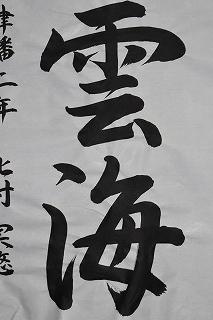 雲海
津幡二年 北村